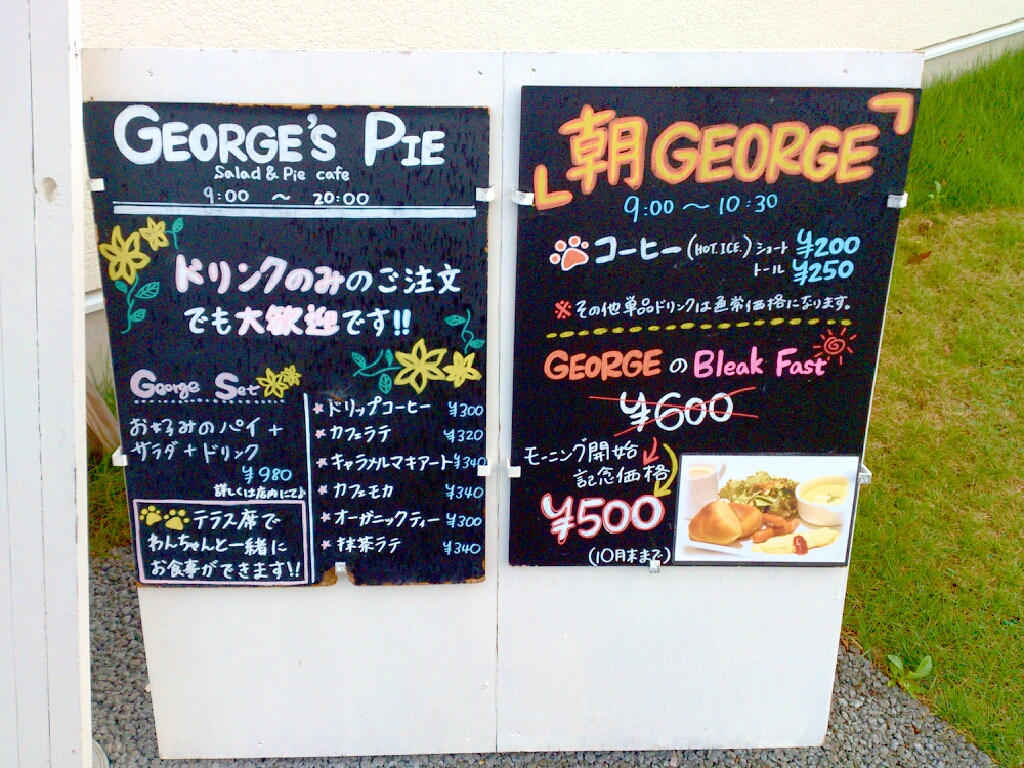 GEORGE'S PIE
Salad & Pie cafe
9:00 〜 20:00
ドリンクのみのご注文
でも大歓迎です!!
George Set
お好みのパイ+
サラダ+ドリンク
¥980
詳しくは店内にて♪
テラス席で
わんちゃんと一緒に
お食事ができます!!
★ドリップコーヒー ¥300
★カフェラテ ¥320
★キャラメルマキアート ¥340
★カフェモカ ¥340
★オーガニックティー ¥300
★抹茶ラテ ¥340
「朝GEORGE」
9:00〜10:30
コーヒー(HOT.ICE.) ショート ¥200
トール ¥250
※その他単品ドリンクは通常価格になります。
GEORGEのBleak Fast
¥600
モーニング開始
記念価格
¥500
(10月末まで)